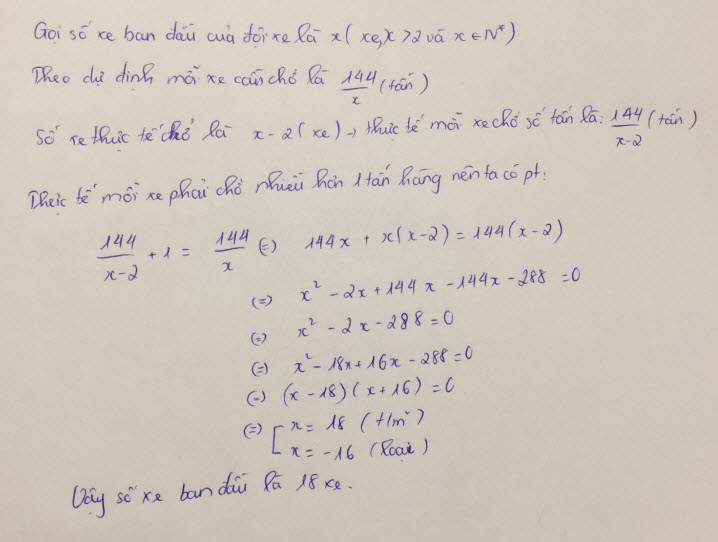 Gọi số xe ban đầu của đội xe là x ( xe, x > 2 và x ∈ N*)
Theo dự định mỗi xe cần chở là 144/x (tấn)
Số xe thực tế chở là x - 2 ( xe) → thực tế mỗi xe chở số tấn là: 144/(x-2) (tấn)
Thực tế mỗi xe phải chở nhiều hơn 1 tấn hàng nên ta có pt:
144/(x-2) + 1 = 144/x (=) 144x + x(x-2) = 144(x-2)
(=) x² - 2x + 144x - 144x - 288 = 0
(=) x² - 2x - 288 = 0
(=) x² - 18x + 16x - 288 = 0
(=) (x - 18) (x + 16) = 0
(=) [ x = 18 (t/m²)
x = -16 (loại)
Vậy số xe ban đầu là 18 xe.